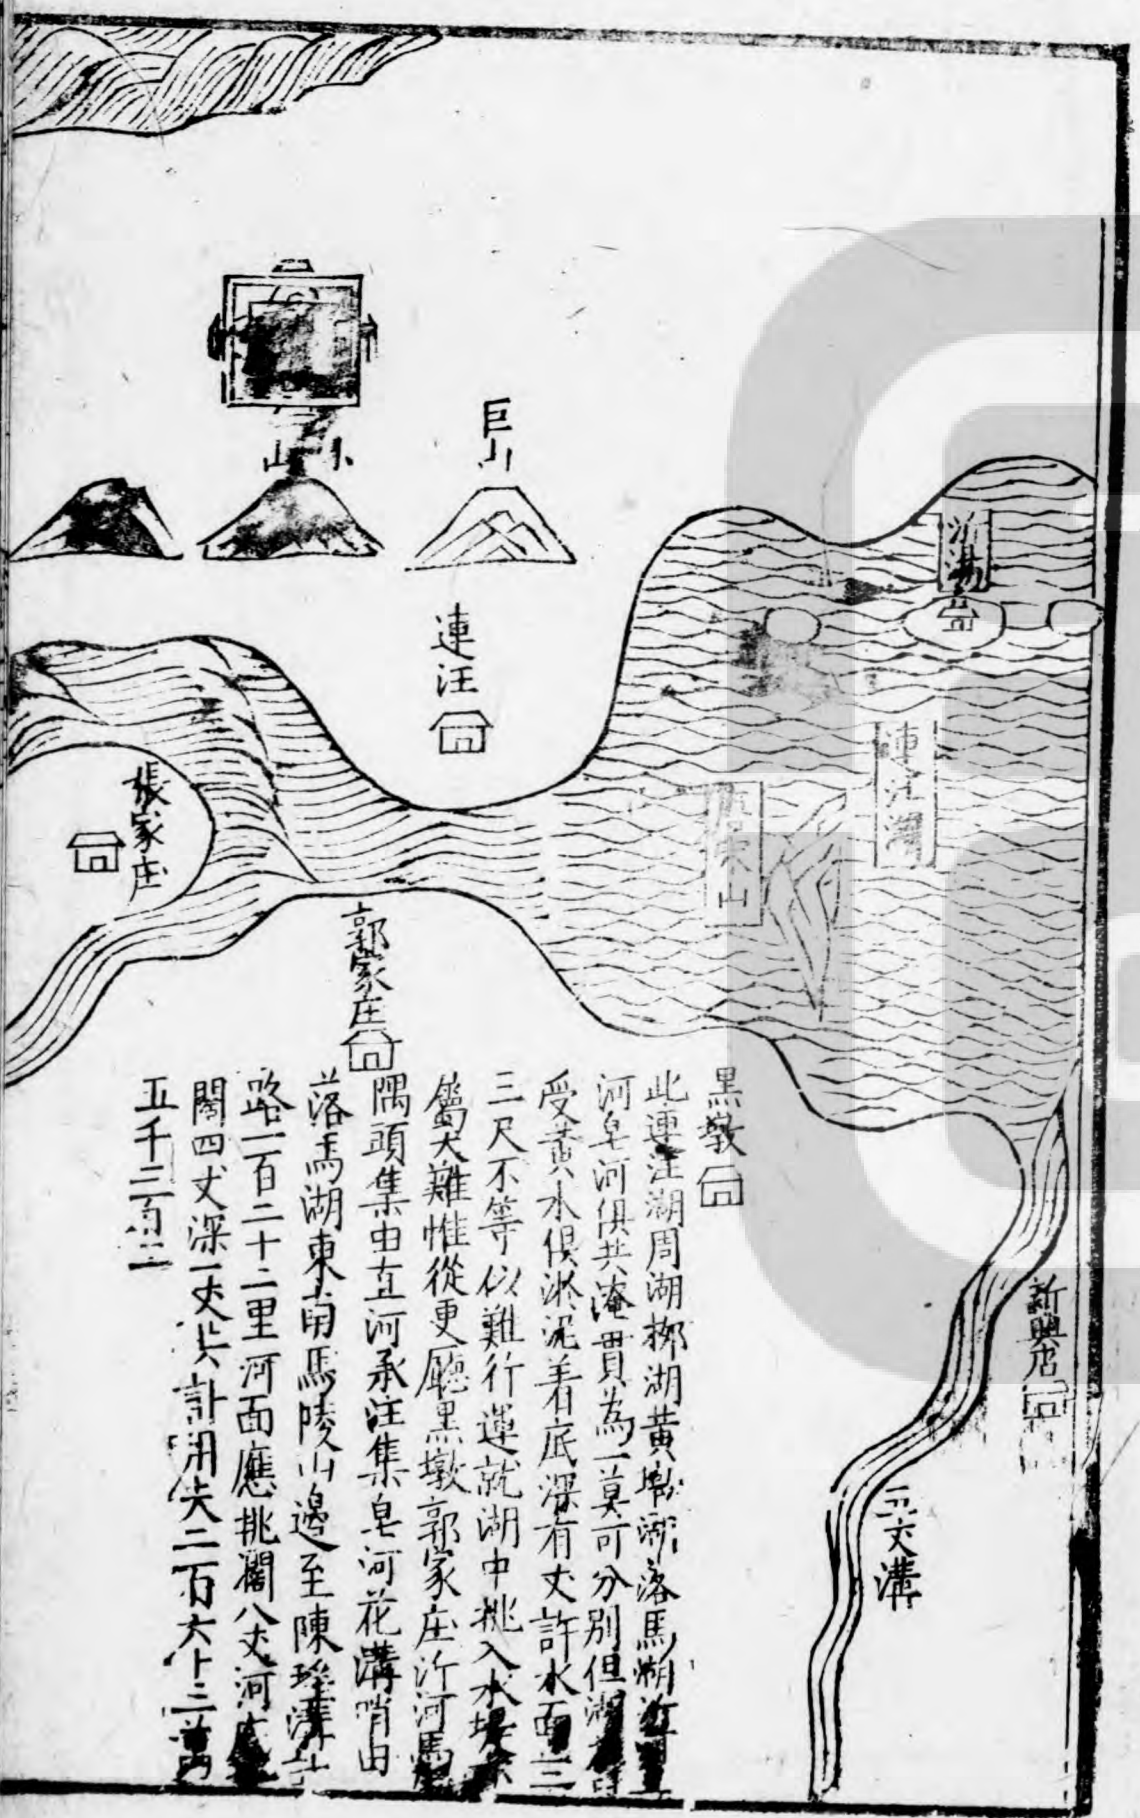 巨山
山
連汪
張家庄
郭家庄
連汪湖
山
新興店
五丈溝
黑墩
此連汪湖周湖柳湖黄墩湖落馬湖沂
河皂河俱共淹貫為一莫可分别但湖
受黄水俱淤泥着底深有丈許水面三
三尺不等似難行運就湖中挑入水
屬大難惟從更廳黑墩郭家庄沂河馬
隅頭集由直河承汪集皂河花溝哨由
落馬湖東南馬陵山邊至陳瑤溝計
路一百二十二里河面應挑闊八丈河底
闊四丈深一丈共計用夫二百六十三萬
五千三百二